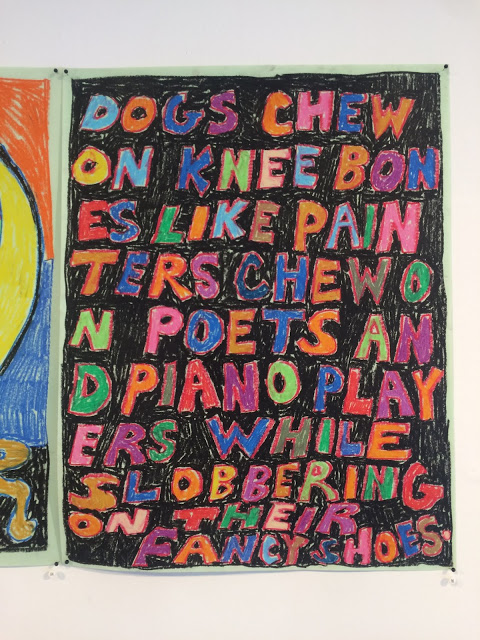 DOGS CHEW
ON KNEE BON
ES LIKE PAIN
TERS CHEW O
N POETS AN
D PIANO PLAY
ERS WHILE
SLOBBERING
ON THEIR
FANCY SHOES.